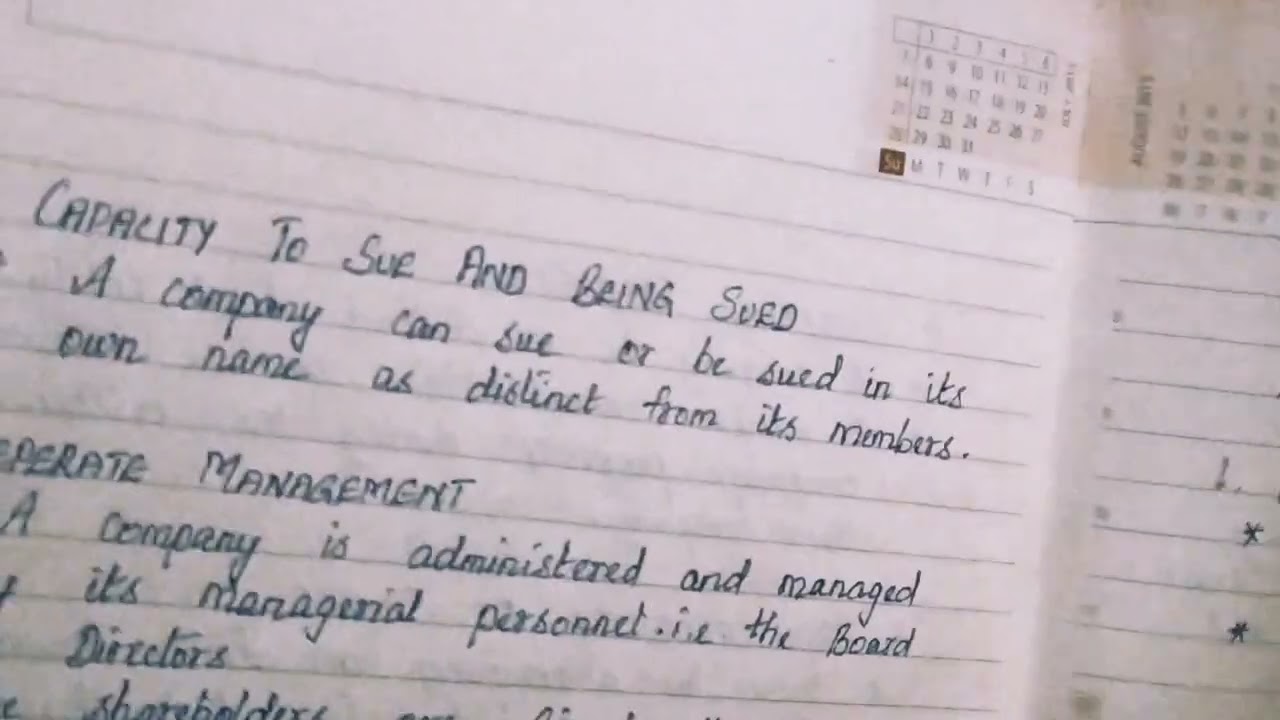 1 2 3 4 5 6
7 8 9 10 11 12 13
14 15 16 17 18 19 20
21 22 23 24 25 26 27
28 29 30 31
Su M T W T F S
AUGUST 2015
CAPACITY TO SUE AND BEING SUED
A company can sue or be sued in its
own name as distinct from its members.
EPERATE MANAGEMENT
A company is administered and managed
its managerial personnel. i.e. the Board
Directors
shareholders
1.
*
*